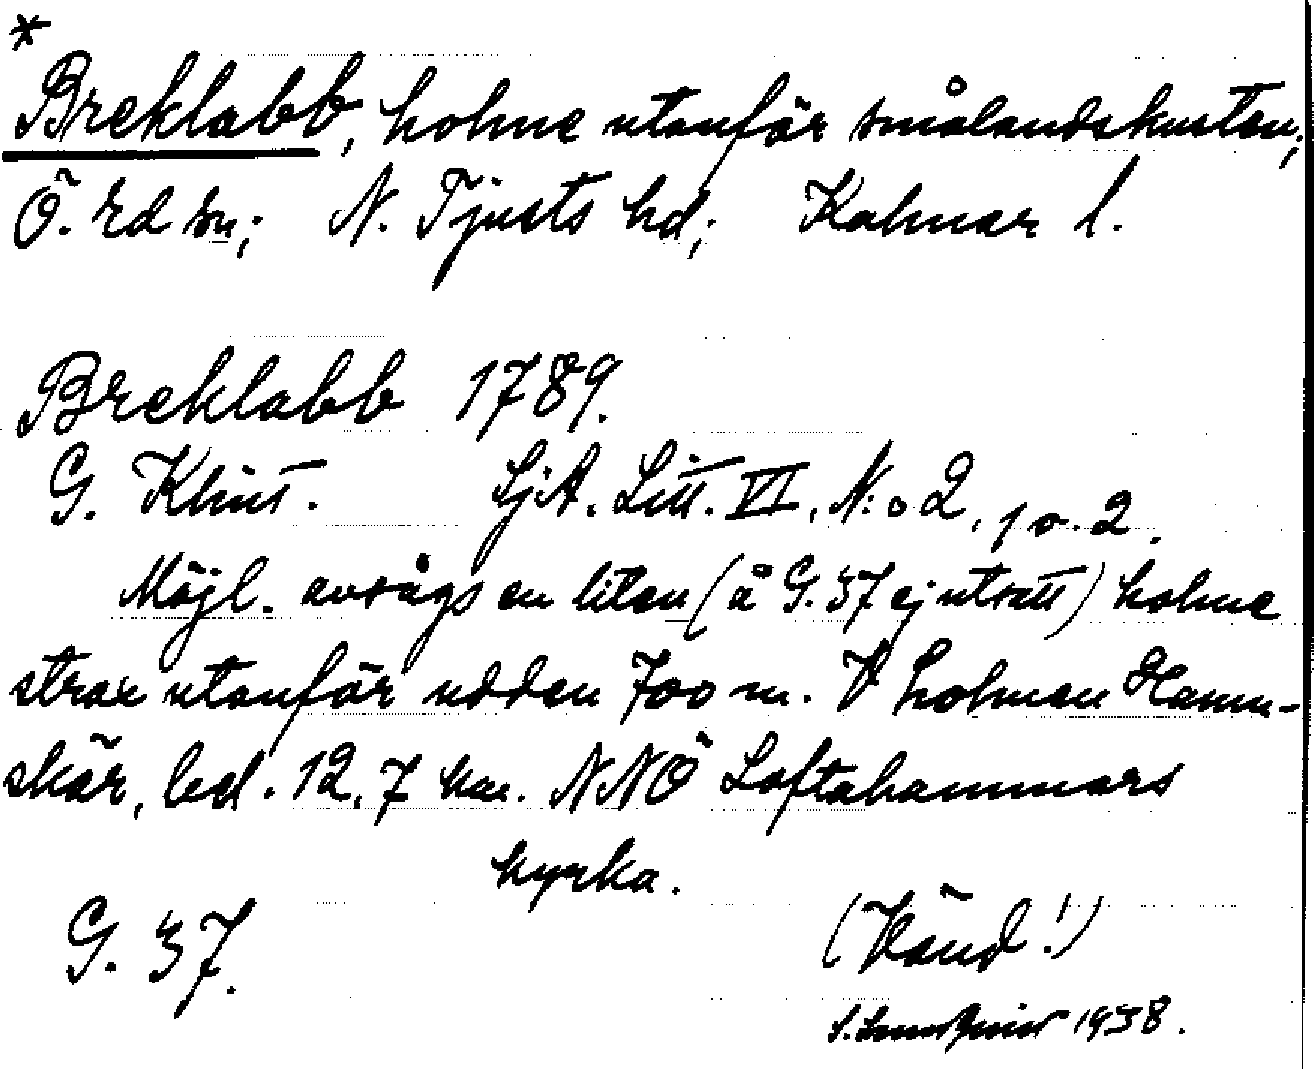 *
Breklabb, holme utanför smålandskusten;
Ö. Ed sn; N. Tjusts hd; Kalmar l.
Breklabb 1789.
G. Klint. SjA. Litt. VI, N:o 2, 1 o. 2.
Möjl. avsågs en liten (å G. 37 ej utsatt) holme
strax utanför udden 700 m. V holmen Hamn-
skär, bel. 12,7 km. NNÖ Loftahammars
kyrka.
G. 37.
(Vänd!)
1938.